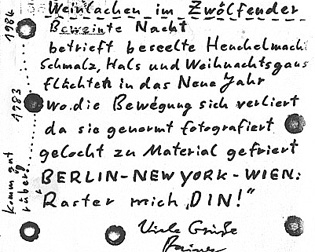 Weinlachen im Zwölfender
Beweinte Nacht
betrieft beseelte Heuchelmacht
Schmalz, Hals und Weihnachtsgans
flüchten in das Neue Jahr
wo die Bewegung sich verliert
da sie genormt fotografiert
gelocht zu Material gefriert
BERLIN-NEW YORK-WIEN:
Raster mich „DIN!"
Viele Grüße
Rainer
Komm gut
rüber!
1983
1984